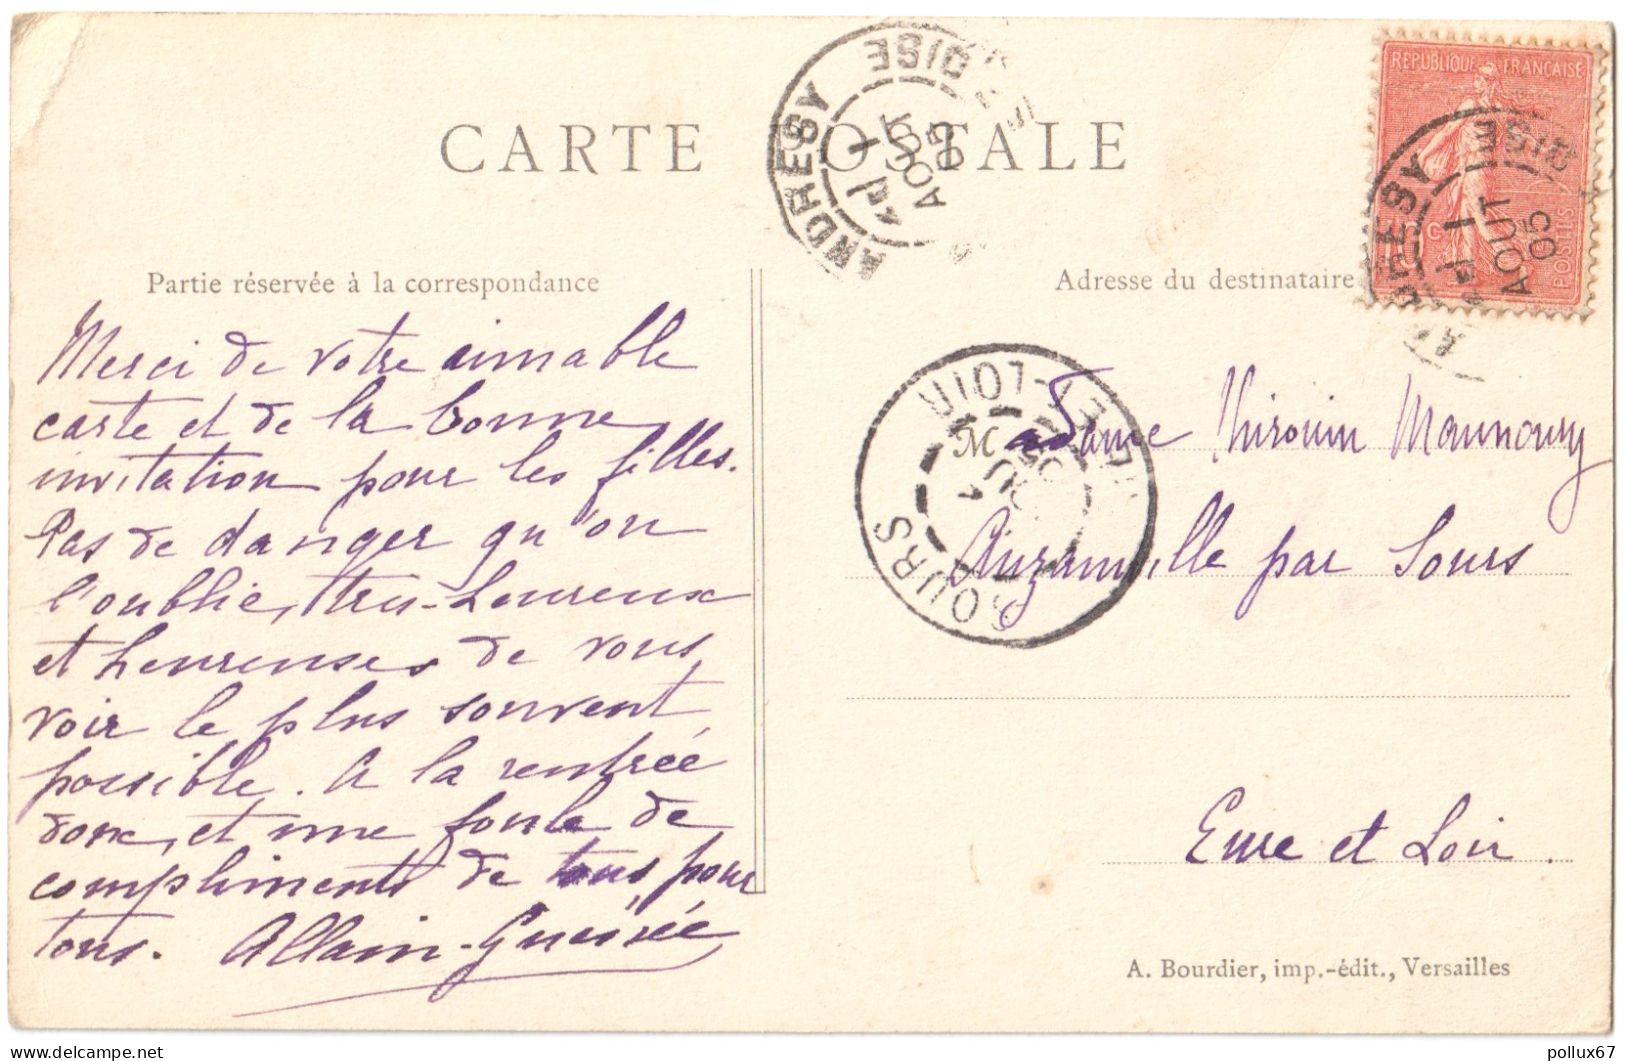 CARTE POSTALE
Partie réservée à la correspondance
Merci de votre aimable
carte et de la bonne
invitation pour les filles.
Pas de danger qu'on
l'oublie, très-heureux
et heureuses de vous
voir le plus souvent
possible. A la rentrée
donc, et une foule de
compliments de tous pour
tous. Allain-
ANDRESY OISE
1
AOUT
05
REPUBLIQUE FRANÇAISE
POSTES
ANDRESY OISE
1
AOUT
05
Adresse du destinataire
SOURS EURE-ET-LOIR
Madame Thirouin Maunoury
par Sours
Eure et Loir.
A. Bourdier, imp.-édit., Versailles
delcampe.net
pollux67